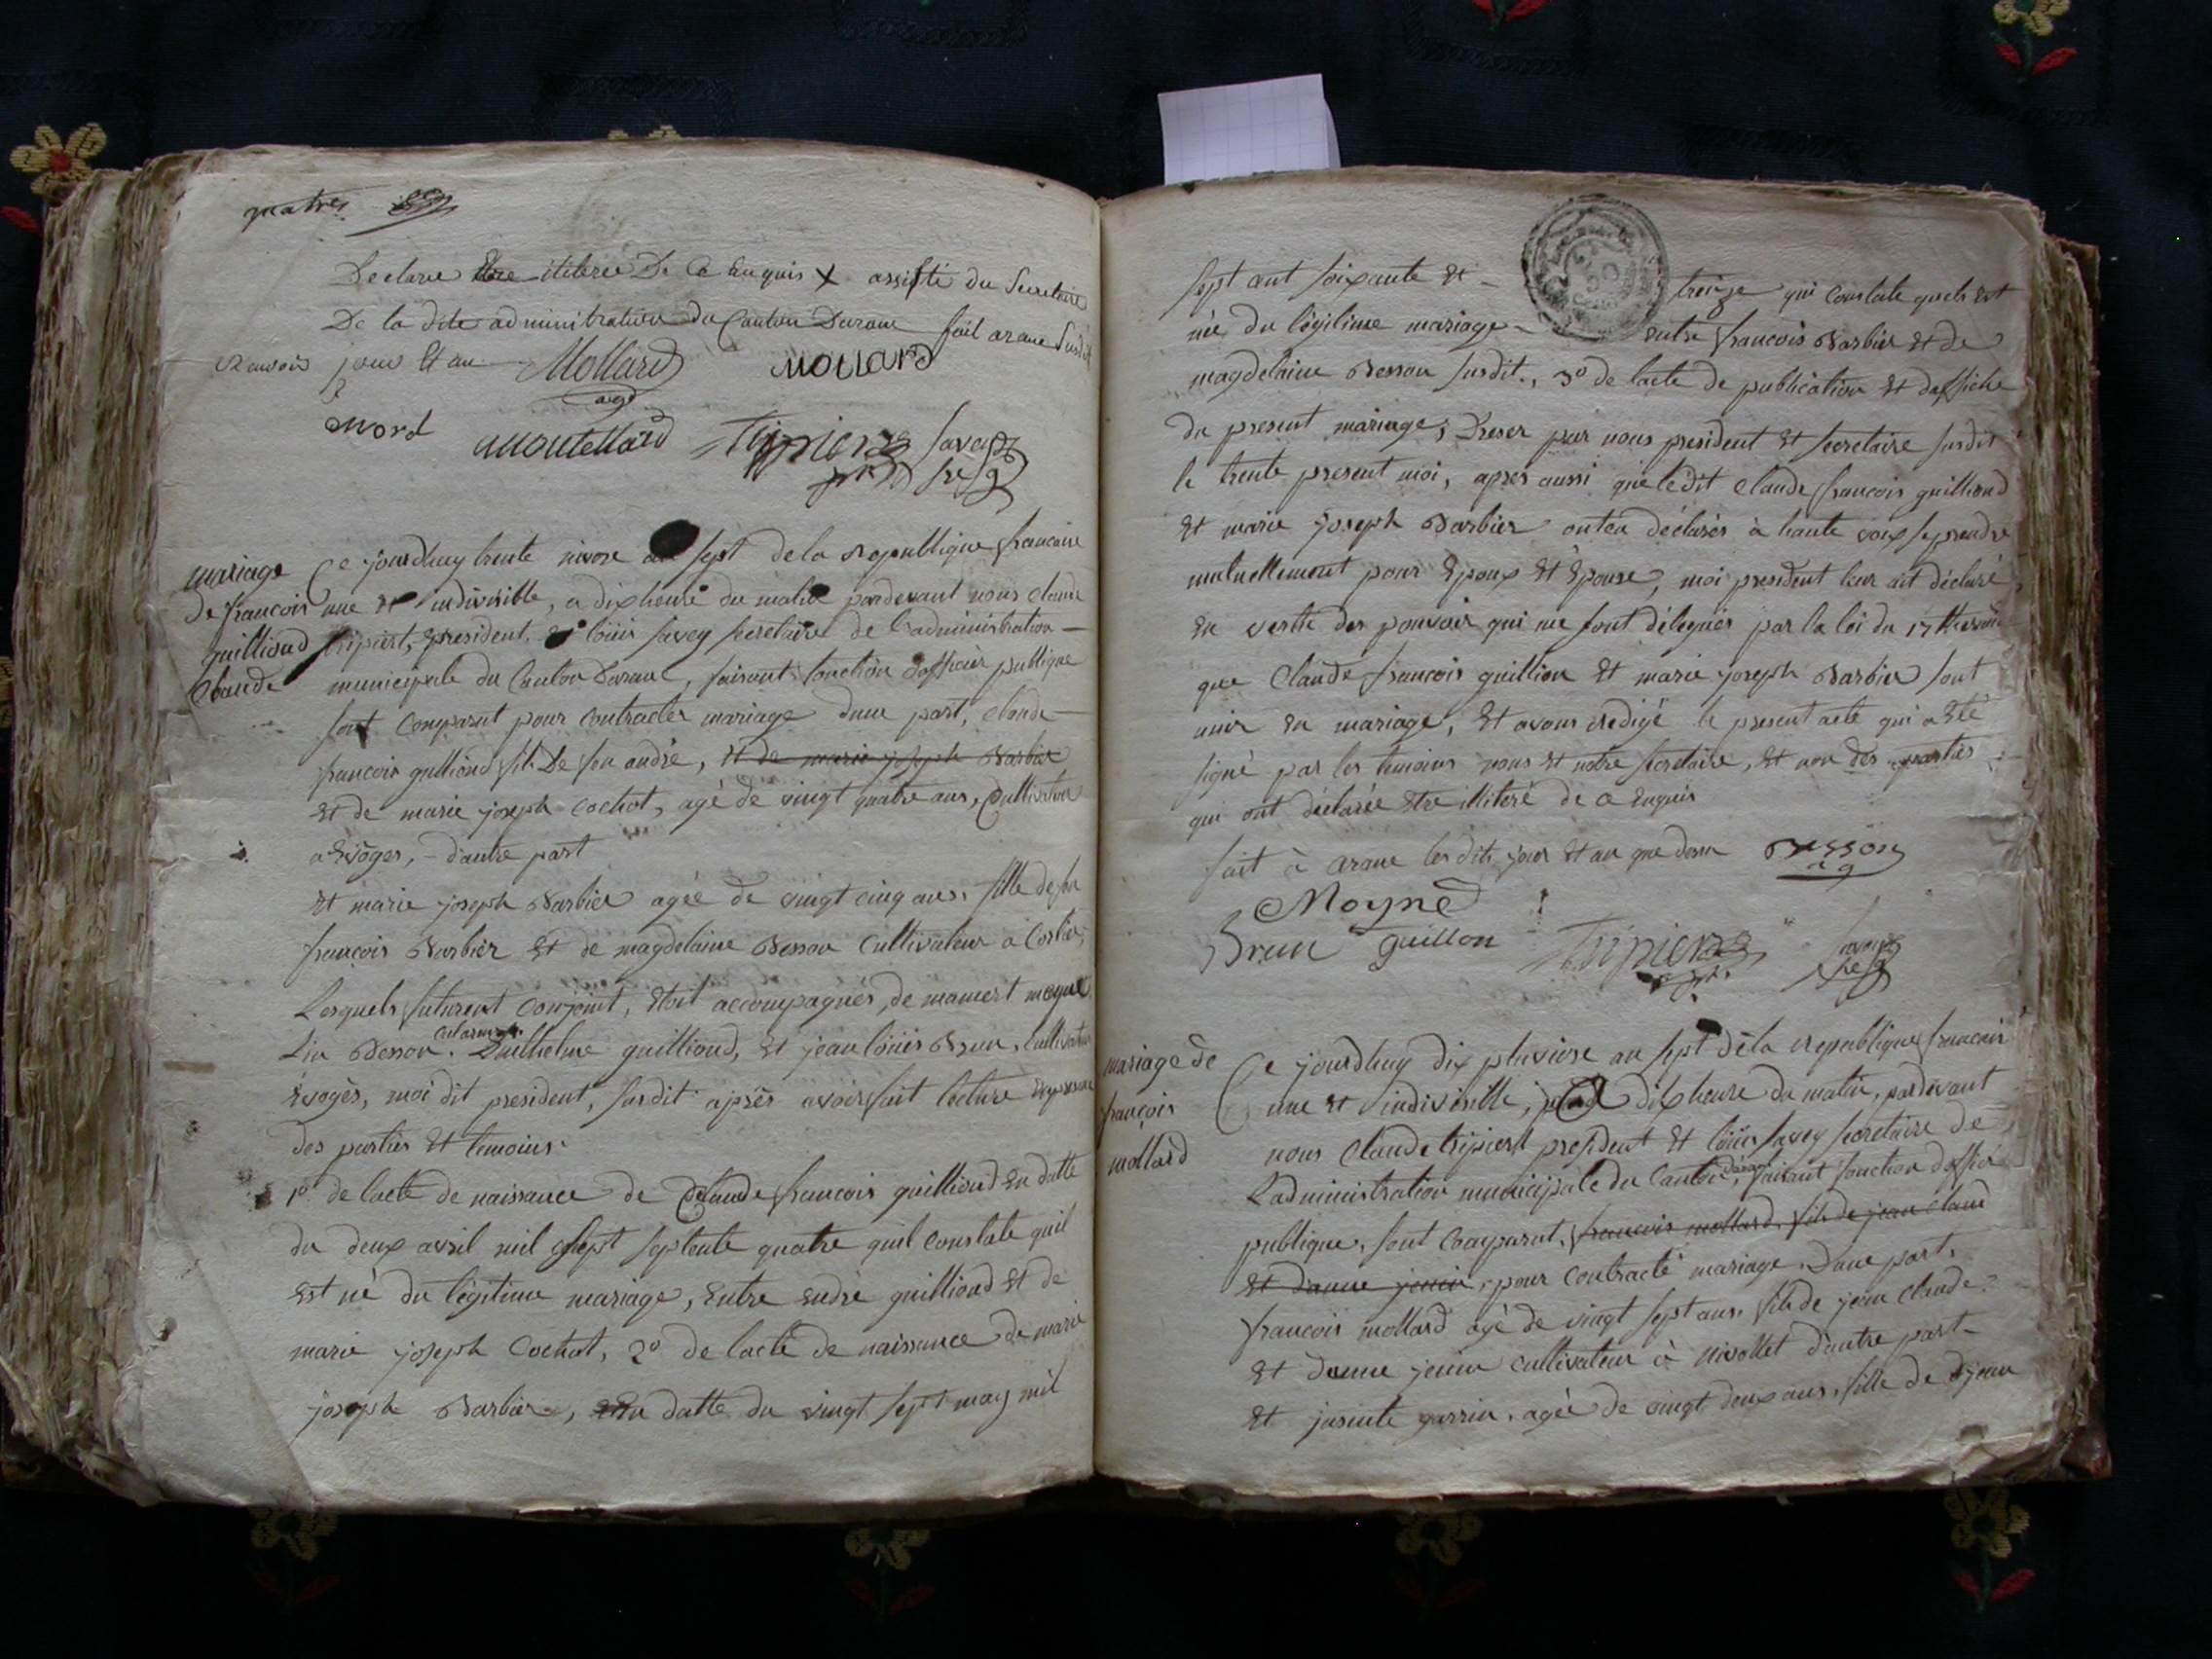 quatre
Declare être iliterée De Ce Enquis X assisté du Secretaire
De la dite adminitration du Canton Darane fait arane susdit
jour Et an Mollard Mollard
agt
mord amontellard Tripier savey
pnt sre
mariage Ce jourdhuy trente nivose an sept de la republique francaise
de francois une Et indivisible, a dix heure du matin pardevant nous claude
guilliond tripiert, president, Et loüis savey secretaire de l'administration
Claude municipale du Canton Darane, faisant fonction dofficier publique
sont Comparut pour Contracter mariage dune part, claude
francois guilliond fils De feu andré, Et de marie joseph Barbier
Et de marie joseph Cochot, agé de vingt quatre ans, Cultivateur
a Evoges, - d'autre part
Et marie joseph Barbier agée de vingt cinq ans, fille de feu
françois Barbier Et de magdelaine Besson Cultivateur à Corlier,
Lesquels futurent Conjoint, Etoit accompagnés, de mamert moyne
Lin Besson, Guilhelme guilliond, Et jean loüis Brun, Cultivateur
Evoges, moi dit president, susdit après avoir fait lecture En presence
des parties Et temoins
1º de lacte de naissance de Claude francois guilliond En datte
du deux avril mil sept septente quatre quil constate quil
Est né du légitime mariage, Entre Endré guilliond Et de
marie joseph Cochot, 2º de lacte de naissance de marie
joseph Barbier, En datte du vingt sept may mil
sept cent soixante Et treize qui Constate quels Est
née du légitime mariage Entre francois Barbier Et de
magdelaine Besson susdit, 3º de lacte de publication Et daffiche
du present mariage; Dreser par nous president Et secretaire susdit
le trente present moi, apres aussi que ledit Claude francois guilliond
Et marie joseph Barbier onten déclarés à haute voix se prendre
mutuellement pour Epoux Et Epouse, moi president leur ait déclaré
En vertu des pouvoir qui me sont délegués par la loi du 17
que Claude francois guillion Et marie joseph Barbier sont
unir En mariage, Et avons redigé le present acte qui a Eté
signé par les temoins nous Et notre secretaire, Et non des parties
qui ont déclarée Etre illiteré de Ce Enquis
fait à arane les dits jour Et an que dessu Besson
Moyne
Brun guillon Tripier savey
mariage de Ce jourdhuy dix pluviose an sept de la republique francais
françois une Et indivisible, dix heure du matin, pardevant
mollard nous Claude tripiert president Et loüis savey secretaire de
L'administration municipale du Canton d'arane, faisant fonction doffier
publique, sont Comparut, francois mollard, fils de jean claud
Et danne jenin, pour Contracté mariage, Dune part,
françois mollard agé de vingt sept ans, fils de jean claude
Et danne jenin cultivateur à nivollet d'autre part
Et jasinte garrin, agée de vingt deux ans, fille de jean